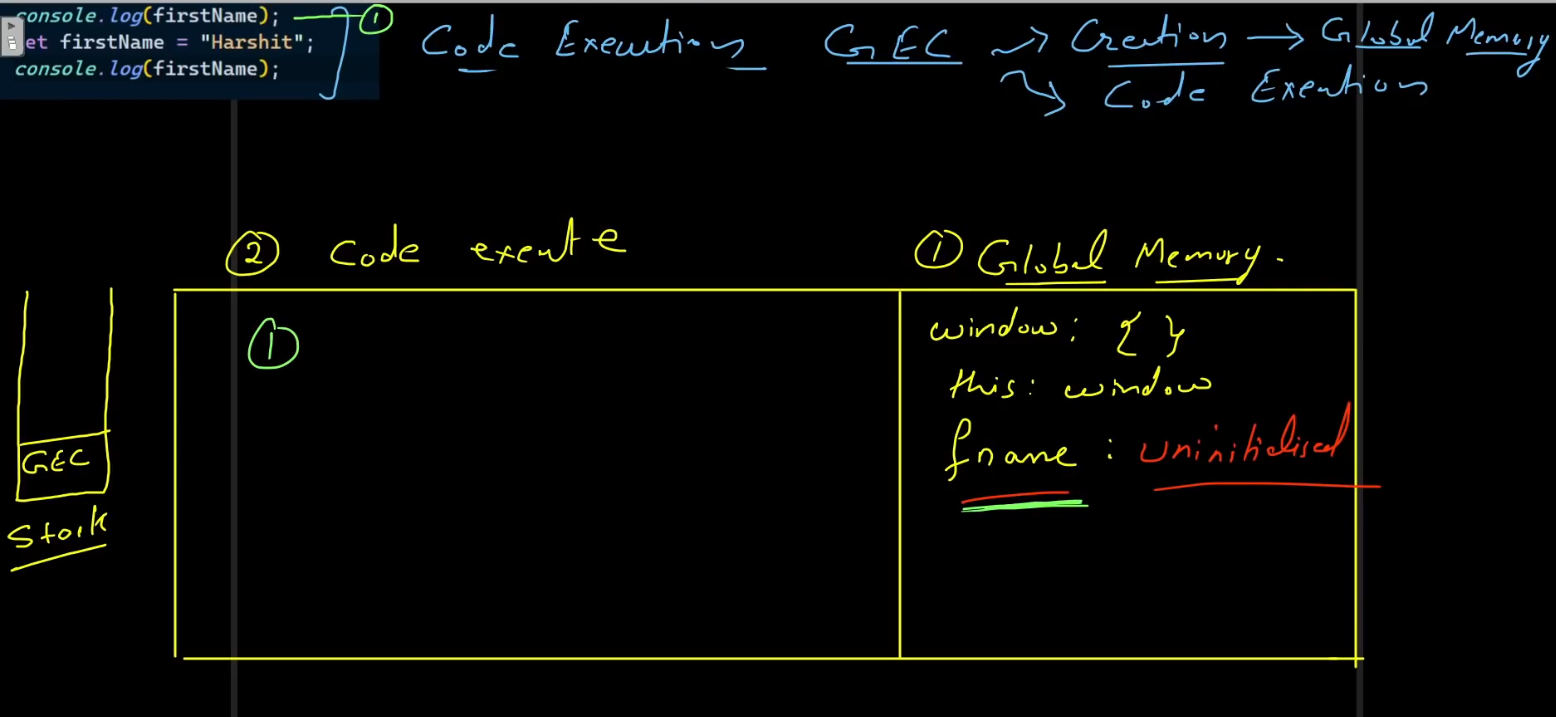 console.log(firstName); ①
et firstName = "Harshit";
console.log(firstName);
Code Execution GEC → Creation → Global Memory
Code Execution
② Code execute
① Global Memory.
①
window: { }
this: window
fname : uninitialised
GEC
Stack